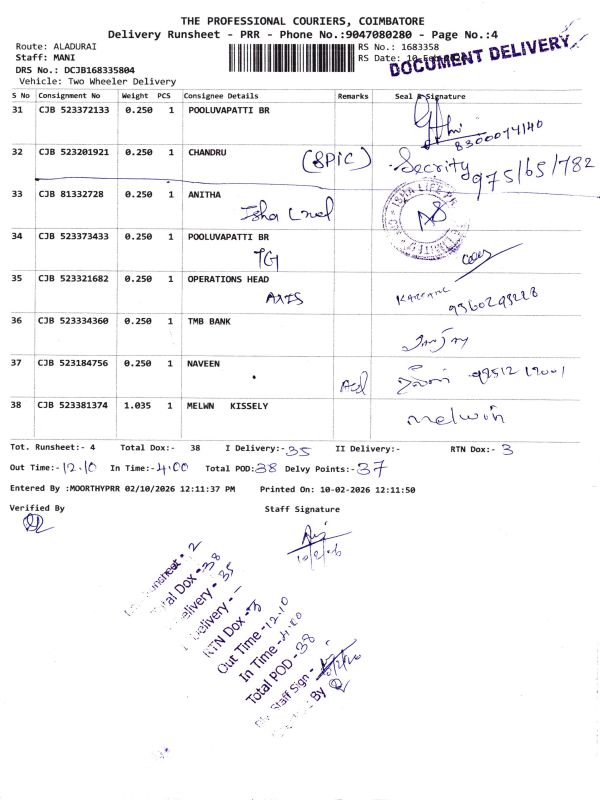 THE PROFESSIONAL COURIERS, COIMBATORE
Delivery Runsheet - PRR - Phone No.:9047080280 - Page No.:4
Route: ALADURAI
RS No.: 1683358
Staff: MANI
RS Date: 10-Feb
DOCUMENT DELIVERY
DRS No.: DCJB168335804
Vehicle: Two Wheeler Delivery
S No Consignment No Weight PCS Consignee Details Remarks Seal & Signature
31 CJB 523372133 0.250 1 POOLUVAPATTI BR
8300074140
32 CJB 523201921 0.250 1 CHANDRU (SPIC) Secrity
975/65/782
33 CJB 81332728 0.250 1 ANITHA
Isha
ISHA LIFE
34 CJB 523373433 0.250 1 POOLUVAPATTI BR
TGJ
35 CJB 523321682 0.250 1 OPERATIONS HEAD
AXIS
36 CJB 523334360 0.250 1 TMB BANK
37 CJB 523184756 0.250 1 NAVEEN
38 CJB 523381374 1.035 1 MELWN KISSELY melwin
Tot. Runsheet:- 4 Total Dox:- 38 I Delivery:- 35 II Delivery:- RTN Dox:- 3
Out Time:- 12.10 In Time:- 4.00 Total POD:38 Delvy Points:- 37
Entered By :MOORTHYPRR 02/10/2026 12:11:37 PM Printed On: 10-02-2026 12:11:50
Verified By Staff Signature
10/2/26
Dox - 38
Delivery - 35
Delivery -
RTN Dox - 3
Out Time - 12.10
In Time - 4.00
Total POD - 38
Staff Sign -
By